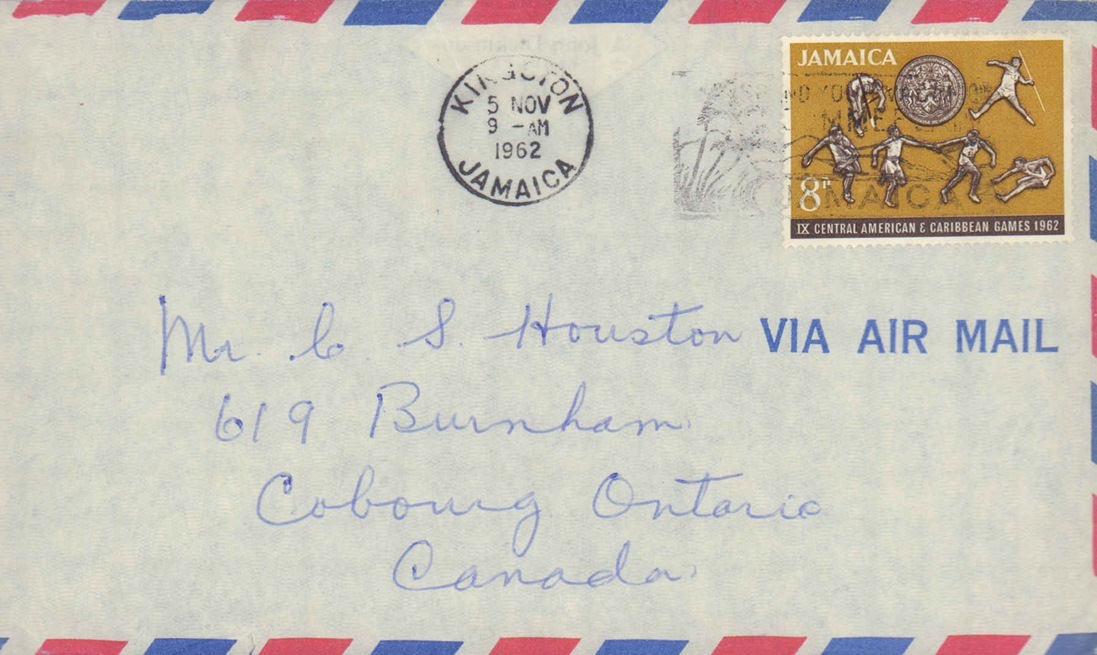 KINGSTON
5 NOV
9 - AM
1962
JAMAICA
JAMAICA
8D
IX CENTRAL AMERICAN & CARIBBEAN GAMES 1962
JAMAICA
Mr. C. S. Houston
VIA AIR MAIL
619 Burnham
Cobourg Ontario
Canada